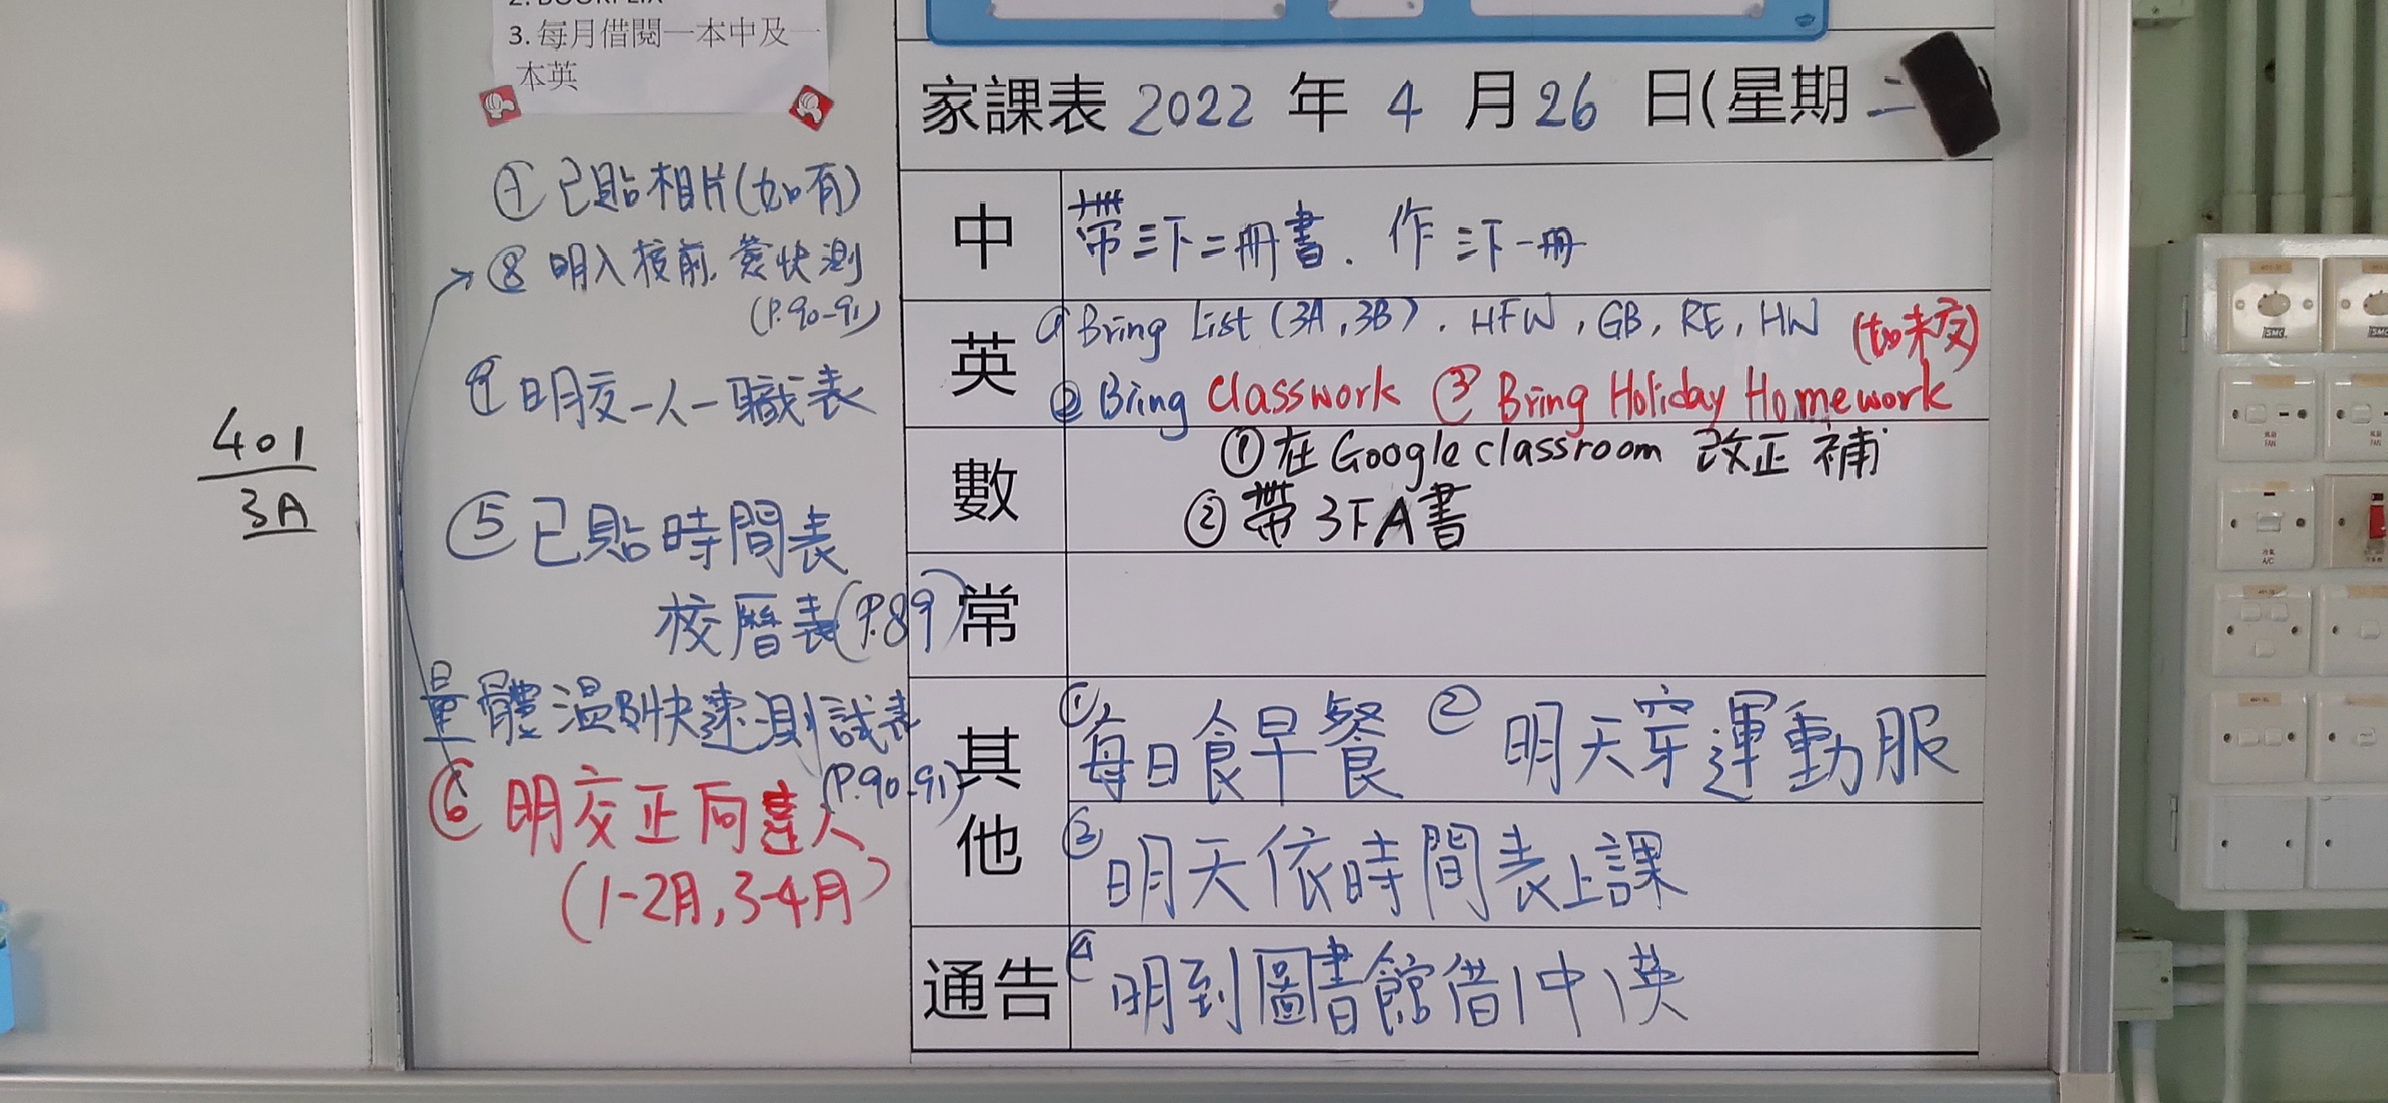 3. 每月借閱一本中及一
本英
家課表 2022 年 4 月 26 日(星期二
中
帶三下二冊書. 作三下一冊
英
① Bring List (3A, 3B), HFW, GB, RE, HW (如未交)
② Bring Classwork ③ Bring Holiday Homework
數
①在Google classroom 改正 補
②帶3下A書
常
其他
①每日食早餐 ②明天穿運動服
③明天依時間表上課
通告
④明到圖書館借1中1英
⑤已貼時間表
校曆表(P.89)
量體溫及快速測試表
(P.90-91)
⑥明交正向達人
(1-2月, 3-4月)
⑦已貼相片(如有)
⑧明入校前, 簽快測
(P.90-91)
⑨明交一人一職表
401
3A